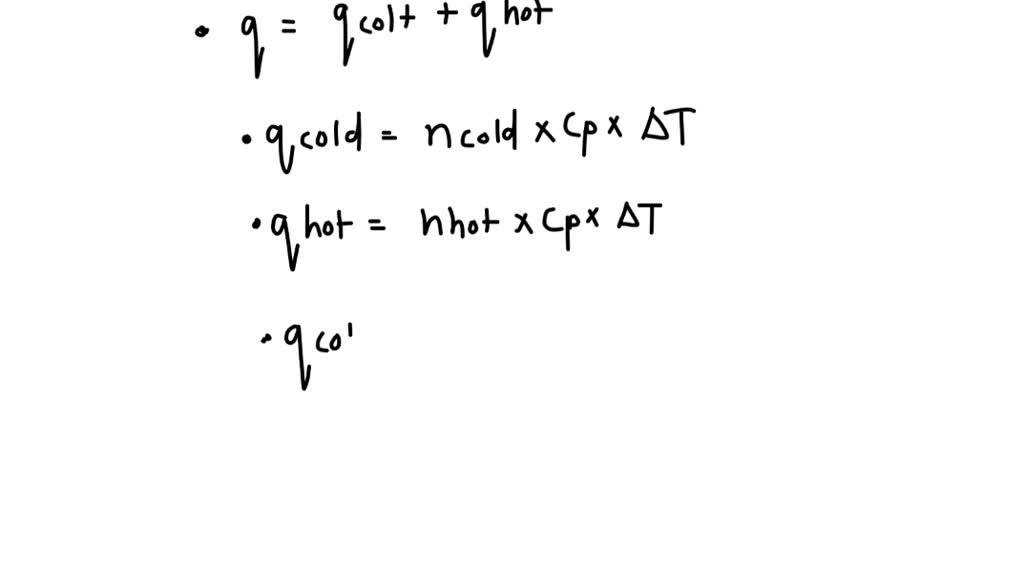 • q = q colt + q hot
• q cold = n cold x Cp x ΔT
• q hot = n hot x Cp x ΔT
• q co'